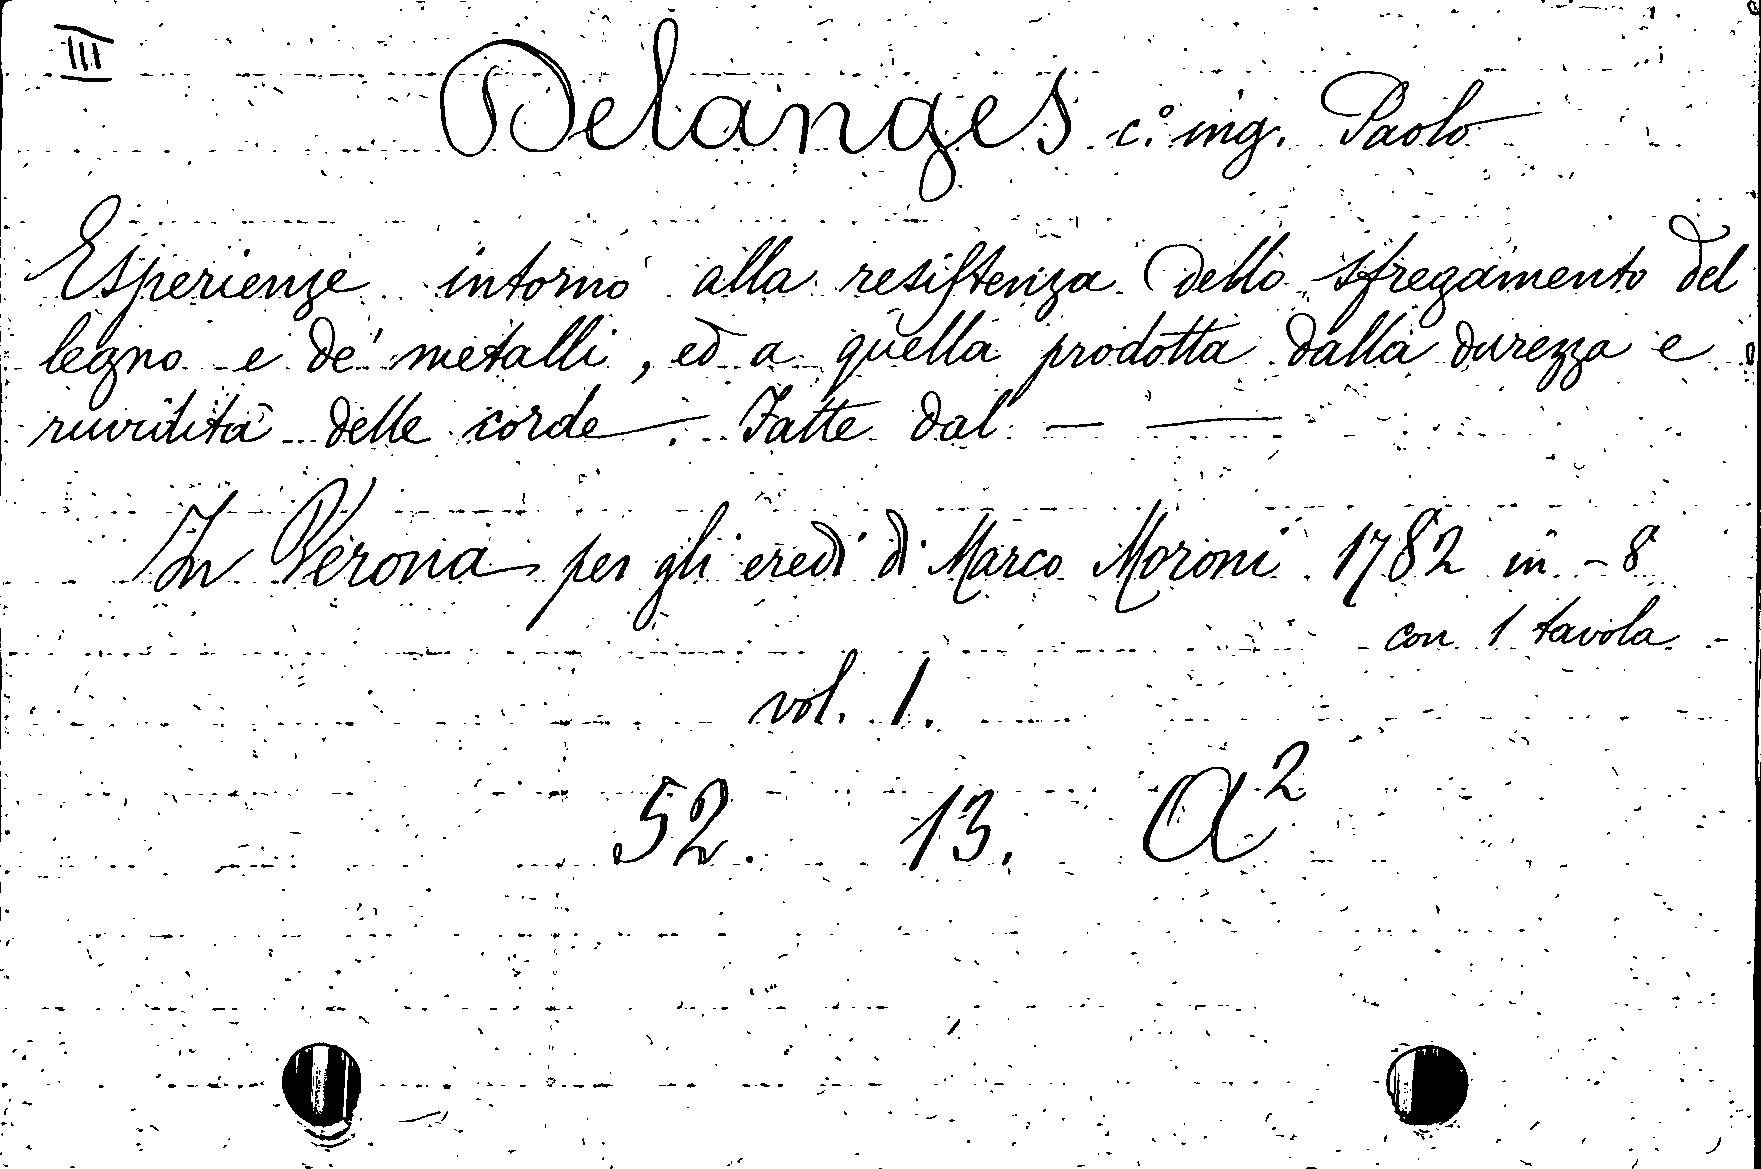 III
Delanges c.º ing. Paolo
Esperienze intorno alla resistenza dello sfregamento del
legno e de' metalli, ed a quella prodotta dalla durezza e
ruvidità delle corde. Fatte dal — —
In Verona per gli eredi di Marco Moroni 1782 in-8
con 1 tavola
vol. 1.
52. 13. A²